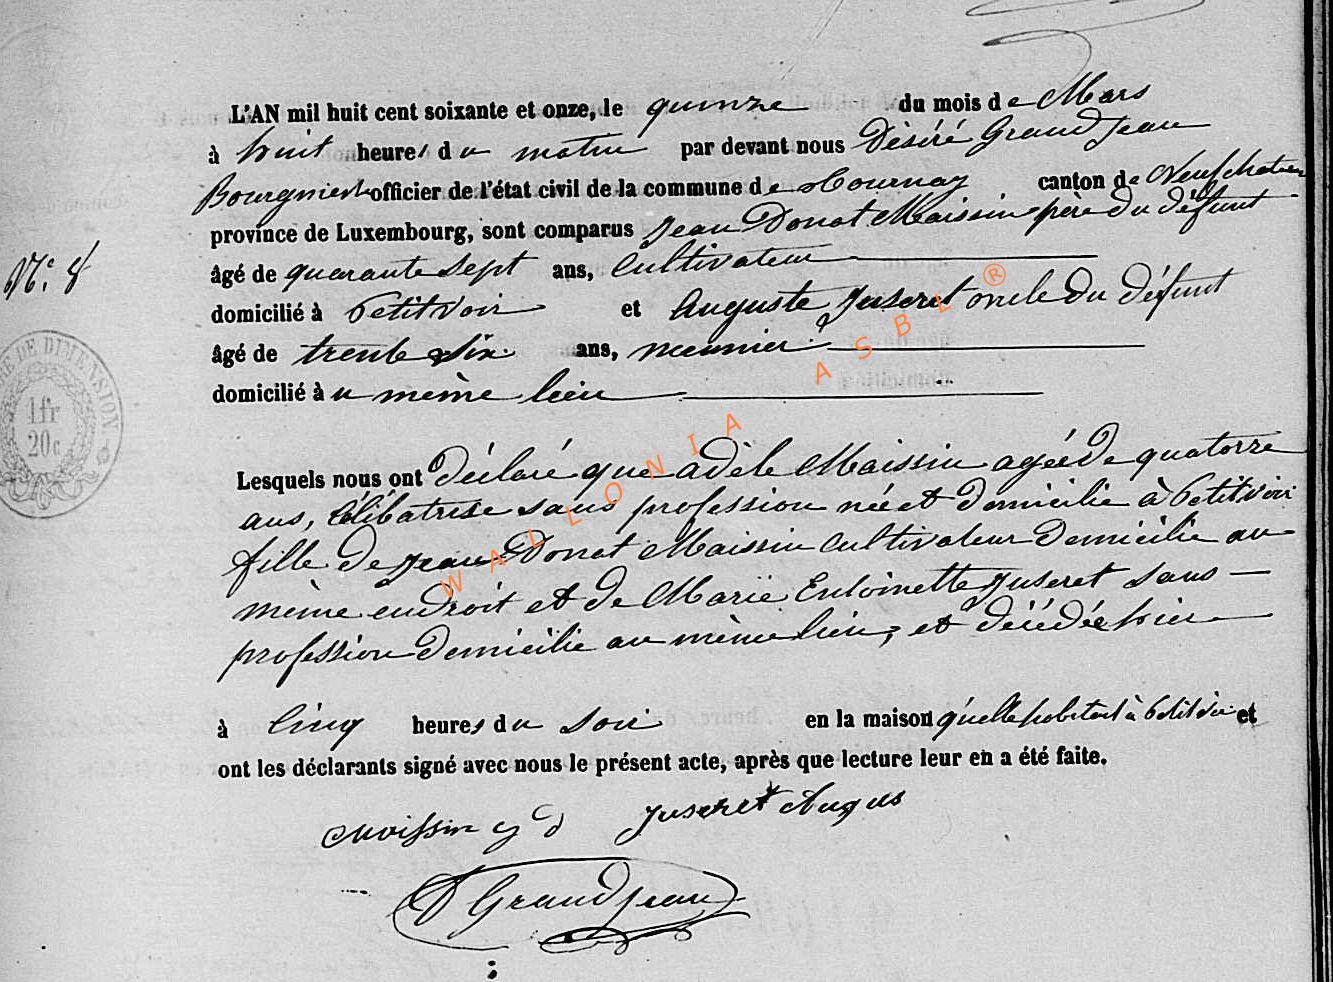 L'AN mil huit cent soixante et onze, le quinze du mois de Mars
à huit heures du matin par devant nous Désiré Grandjean
Bourgmestre officier de l'état civil de la commune de Tournay canton de Neufchateau
province de Luxembourg, sont comparus Jean Donat Maissin père du défunt
N° 8
âgé de quarante sept ans, Cultivateur
domicilié à Petitvoir et Auguste Juseret oncle du défunt
âgé de trente six ans, meunier
domicilié à u même lieu
RE DE DIMENSION
1 fr
20c
WALLONIA ASBL ®
Lesquels nous ont déclaré que adèle Maissin agée de quatorze
ans, Célibatrise sans profession née et domicilie à Petitvoir
fille de Jean Donat Maissin Cultivateur domicilie au
même endroit et de Marie Entoinette Juseret sans
profession domicilie au même lieu, et décédée hier
à Cinq heures du soir en la maison qu'elle habitait à Petitvoir et
ont les déclarants signé avec nous le présent acte, après que lecture leur en a été faite.
Maissin J D Juseret Augus
D Grandjean